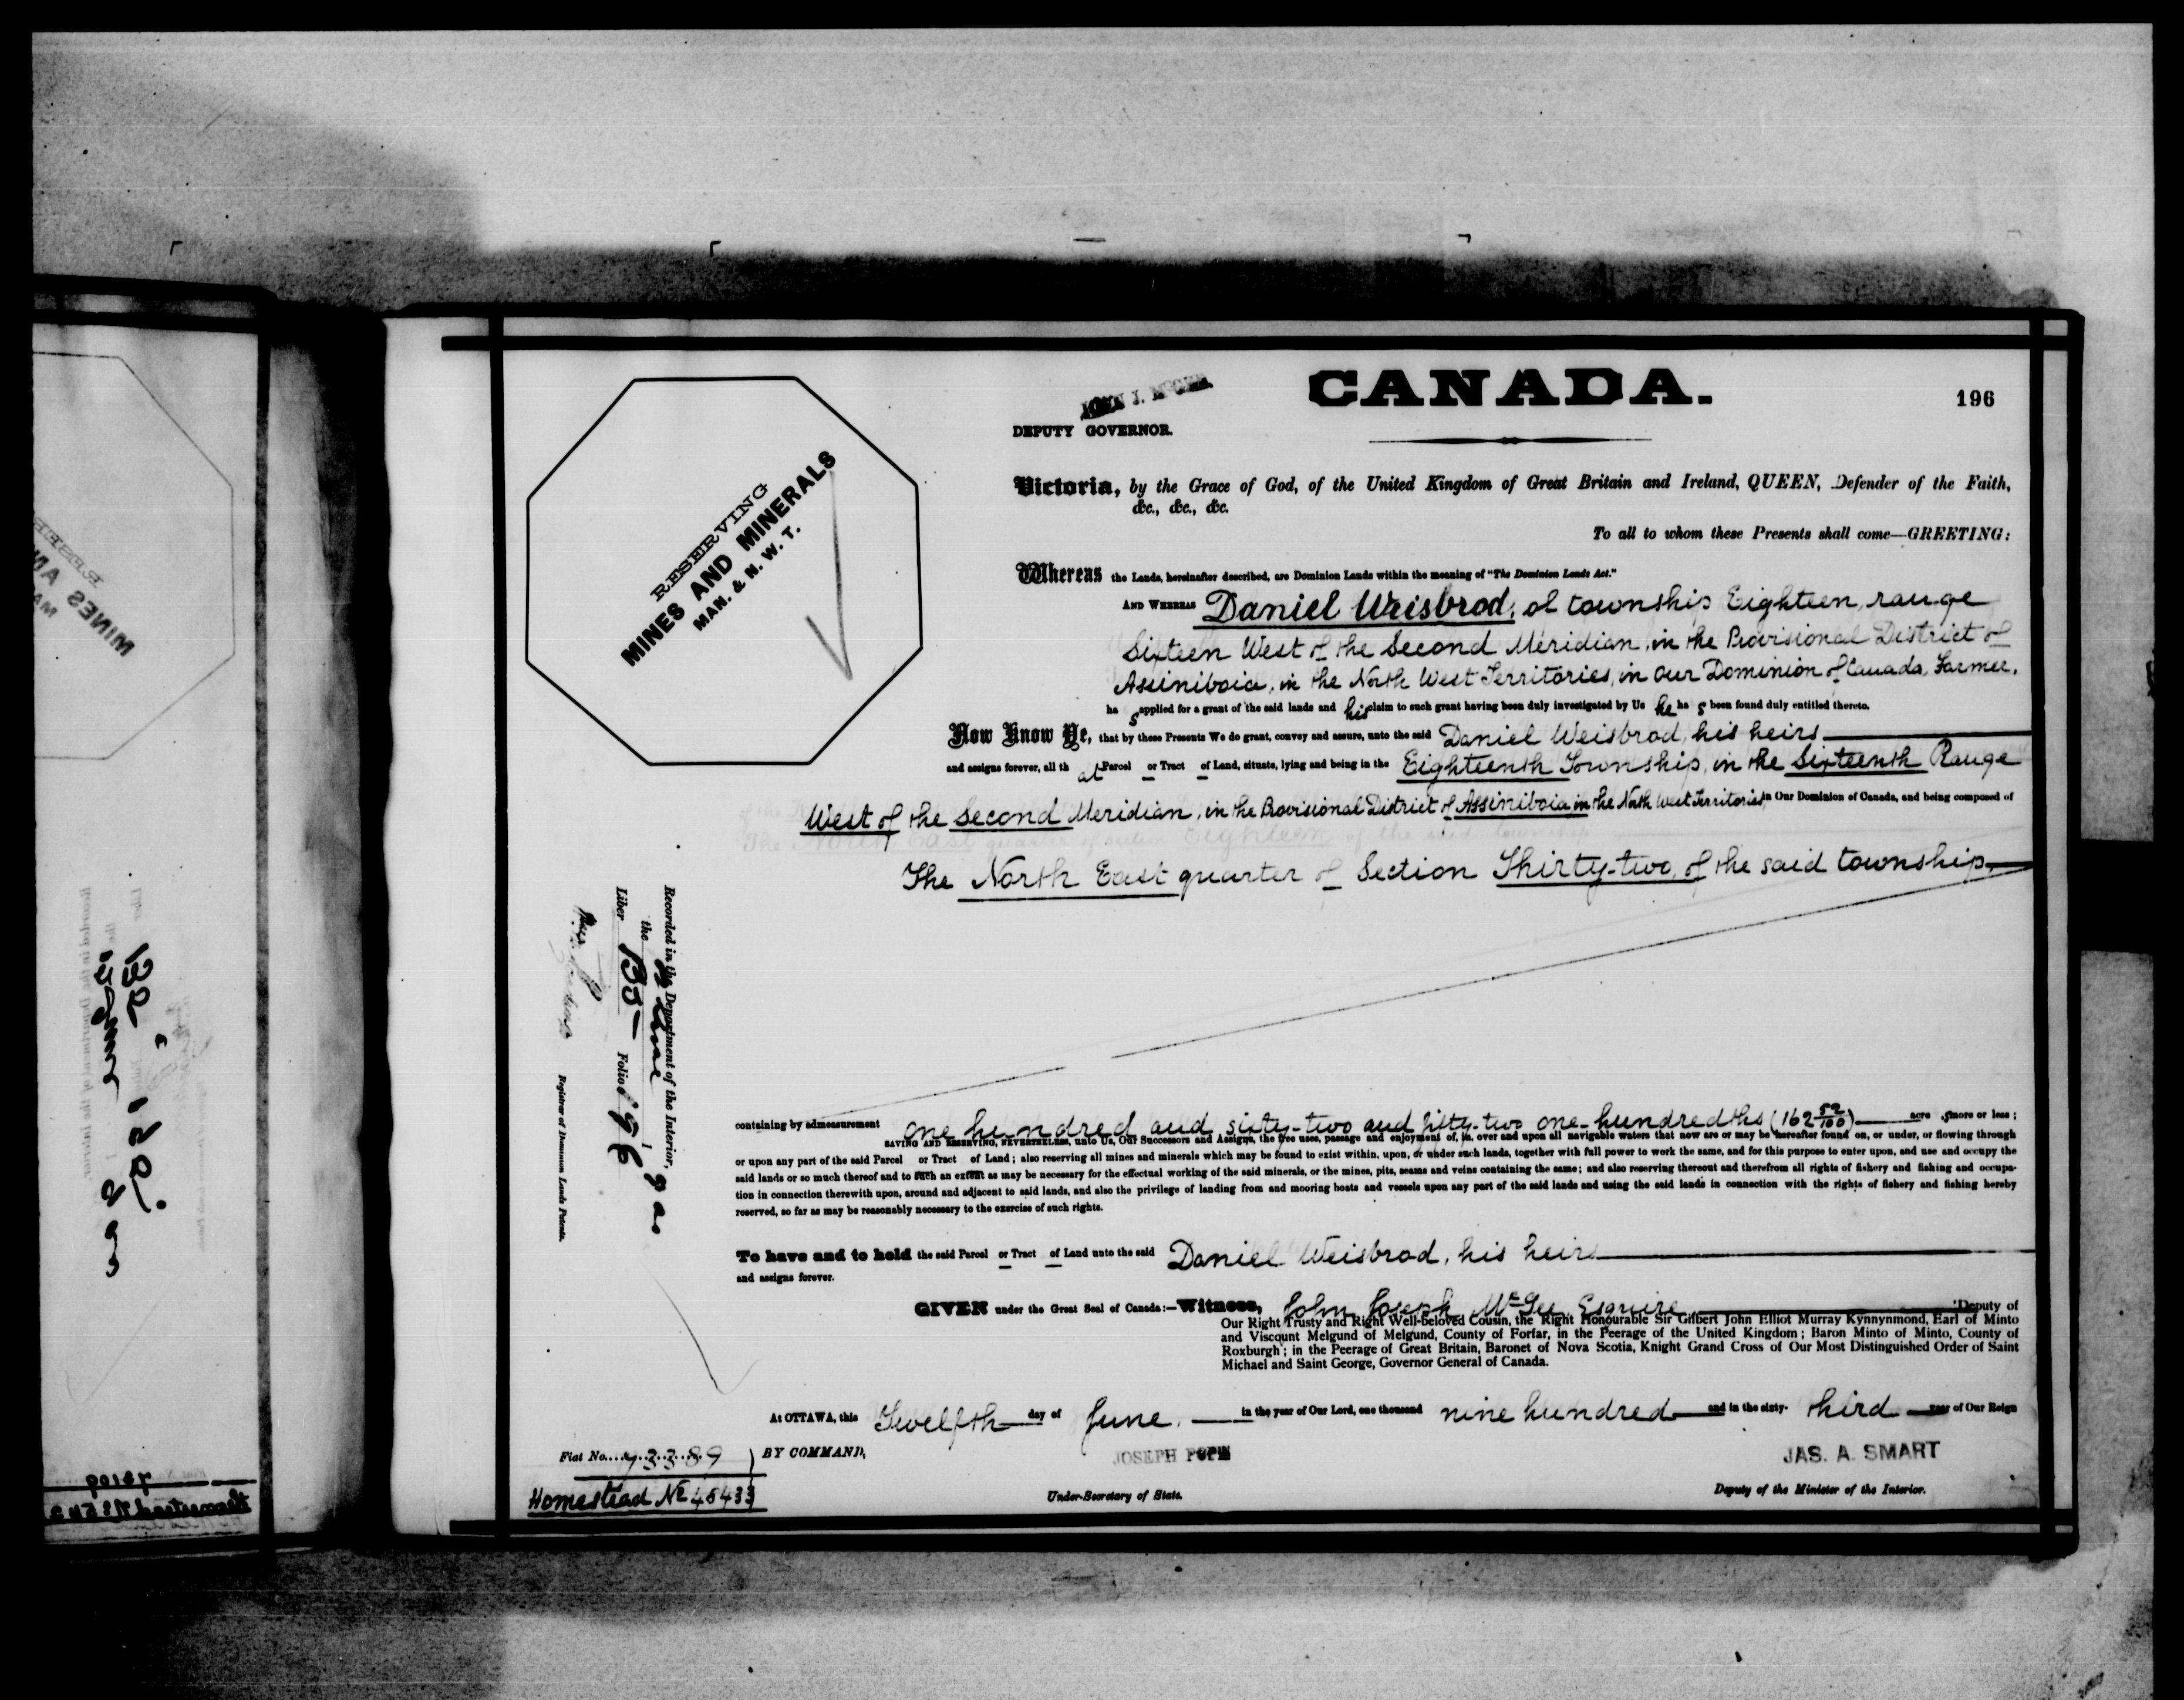 CANADA.
196
JOHN J. McGEE.
DEPUTY GOVERNOR.
RESERVING
MINES AND MINERALS
MAN. & N. W. T.
Victoria, by the Grace of God, of the United Kingdom of Great Britain and Ireland, QUEEN, Defender of the Faith,
&c., &c., &c.
To all to whom these Presents shall come—GREETING:
Whereas the Lands, hereinafter described, are Dominion Lands within the meaning of "The Dominion Lands Act."
AND WHEREAS Daniel Weisbrod, of township Eighteen, range
Sixteen West of the Second Meridian, in the Provisional District of
Assiniboia, in the North West Territories, in Our Dominion of Canada, Farmer,
ha s applied for a grant of the said lands and his claim to such grant having been duly investigated by Us he ha s been found duly entitled thereto.
Now Know Ye, that by these Presents We do grant, convey and assure, unto the said Daniel Weisbrod, his heirs
and assigns forever, all th at Parcel or Tract of Land, situate, lying and being in the Eighteenth Township, in the Sixteenth Range
West of the Second Meridian, in the Provisional District of Assiniboia in the North West Territories in Our Dominion of Canada, and being composed of
The North East quarter of Section Thirty-two, of the said township,
Recorded in the Department of the Interior,
the June
Liber Folio 196
Registrar of Dominion Lands Patents.
containing by admeasurement one hundred and sixty-two and fifty-two one-hundredths (162 52/100) acre s more or less;
SAVING AND RESERVING, NEVERTHELESS, unto Us, Our Successors and Assigns, the free uses, passage and enjoyment of, in, over and upon all navigable waters that now are or may be hereafter found on, or under, or flowing through
or upon any part of the said Parcel or Tract of Land; also reserving all mines and minerals which may be found to exist within, upon, or under such lands, together with full power to work the same, and for this purpose to enter upon, and use and occupy the
said lands or so much thereof and to such an extent as may be necessary for the effectual working of the said minerals, or the mines, pits, seams and veins containing the same; and also reserving thereout and therefrom all rights of fishery and fishing and occupa-
tion in connection therewith upon, around and adjacent to said lands, and also the privilege of landing from and mooring boats and vessels upon any part of the said lands and using the said lands in connection with the rights of fishery and fishing hereby
reserved, so far as may be reasonably necessary to the exercise of such rights.
To have and to hold the said Parcel or Tract of Land unto the said Daniel Weisbrod, his heirs
and assigns forever.
GIVEN under the Great Seal of Canada:—Witness, John Joseph McGee, Esquire Deputy of
Our Right Trusty and Right Well-beloved Cousin, the Right Honourable Sir Gilbert John Elliot Murray Kynnynmond, Earl of Minto
and Viscount Melgund of Melgund, County of Forfar, in the Peerage of the United Kingdom; Baron Minto of Minto, County of
Roxburgh; in the Peerage of Great Britain, Baronet of Nova Scotia, Knight Grand Cross of Our Most Distinguished Order of Saint
Michael and Saint George, Governor General of Canada.
At OTTAWA, this Twelfth day of June, in the year of Our Lord, one thousand nine hundred and in the sixty- third year of Our Reign
Fiat No. 73389
BY COMMAND,
JOSEPH POPE
JAS. A. SMART
Homestead No 45433
Under-Secretary of State.
Deputy of the Minister of the Interior.